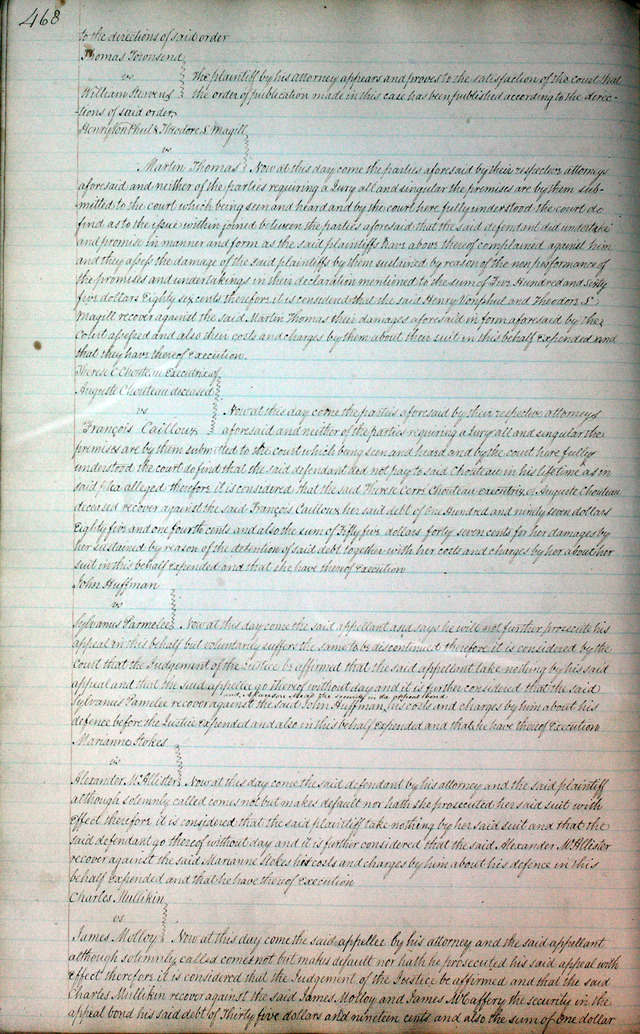 468
to the directions of said order
Thomas Townsend
vs
William Stavens
the plaintiff by his attorney appears and proves to the satisfaction of the court that
the order of publication made in this case has been published according to the direc-
tions of said order
Henry Von Phul & Theodore S. Magill
vs
Martin Thomas Now at this day come the parties aforesaid by their respective attorneys
aforesaid and neither of the parties requiring a Jury all and singular the premises are by them sub-
mitted to the court which being seen and heard and by the court here fully understood the court do
find as to the issue within joined between the parties aforesaid that the said defendant did undertake
and promise in manner and form as the said plaintiff have above thereof complained against him
and they assess the damage of the said plaintiffs by them sustained by reason of the non performance of
the promises and undertakings in their declaration mentioned to the sum of Hundred and Sixty
five dollars Eighty six cents therefore it is considered that the said Henry Vonphul and Theodore S.
Magill recover against the said Martin Thomas their damages aforesaid in form aforesaid by the
Court assessed and also their costs and charges by them about their suit in this behalf expended and
that they have thereof execution.
Therese C Chouteau Executrix of
Auguste Chouteau deceased
vs
François Cailloux
Now at this day come the parties aforesaid by their respective attorneys
aforesaid and neither of the parties requiring a Jury all and singular the
premises are by them submitted to the court which being seen and heard and by the court here fully
understood the court do find that the said defendant had not pay to said Chouteau in his lifetime as in
said plea alleged therefore it is considered that the said Therese Cerri Chouteau executrix of Auguste Chouteau
deceased recover against the said François Cailloux her said debt of One Hundred and ninety seven dollars
Eighty five and one fourth cents and also the sum of Fifty five dollars forty seven cents for her damages by
her sustained by reason of the detention of said debt together with her costs and charges by her about her
suit in this behalf expended and that she have thereof Execution
John Huffman
vs
Sylvanus Parmelee Now at this day come the said appellant and says he will not further prosecute his
appeal in this behalf but voluntarily suffers the same to be discontinued therefore it is considered by the
Court that the Judgement of the Justice be affirmed that the said appellant take nothing by his said
appeal and that the said appellee go thereof without day and it is further considered that the said
the security in the appeal bond
Sylvanus Pamelee recover against the said John Huffman his costs and charges by him about his
defence before the Justice expended and also in this behalf expended and that he have thereof Execution
Marianne Stokes
vs
Alexander McAllister Now at this day come the said defendant by his attorney and the said plaintiff
although solemnly called comes not but makes default nor hath she prosecuted her said suit with
effect therefore it is considered that the said plaintiff take nothing by her said suit and that the
said defendant go thereof without day and it is further considered that the said Alexander McAllister
recover against the said Marianne Stokes his costs and charges by him about his defence in this
behalf expended and that he have thereof execution
Charles Mullikin
vs
James Molloy Now at this day come the said appellee by his attorney and the said appellant
although solemnly called comes not but makes default nor hath he prosecuted his said appeal with
effect therefore it is considered that the Judgement of the Justice be affirmed and that the said
Charles Mullikin recover against the said James Molloy and James McCaffery the security in the
appeal bond his said debt of Thirty five dollars and nineteen cents and also the sum of One dollar